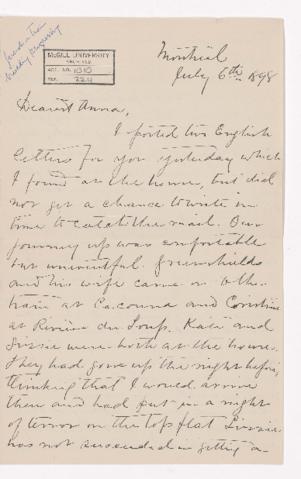 McGILL UNIVERSITY
ARCHIVES
ACC. NO. 1010
REF.
Montreal
July 6th 1898
Dearest Anna,
I posted two English
letters for you yesterday which
I found at the house, but did
not get a chance to write in
time to catch the mail. Our
journey up was comfortable
but uneventful. Greenshields
and his wife came on to the
train at Cacouna and
at Rivière du Loup. Katie and
Lizzie were both at the house.
They had gone up the night before,
thinking that I would arrive
then and had put in a night
of terror on the top flat. Lizzie
has not succeeded in getting a